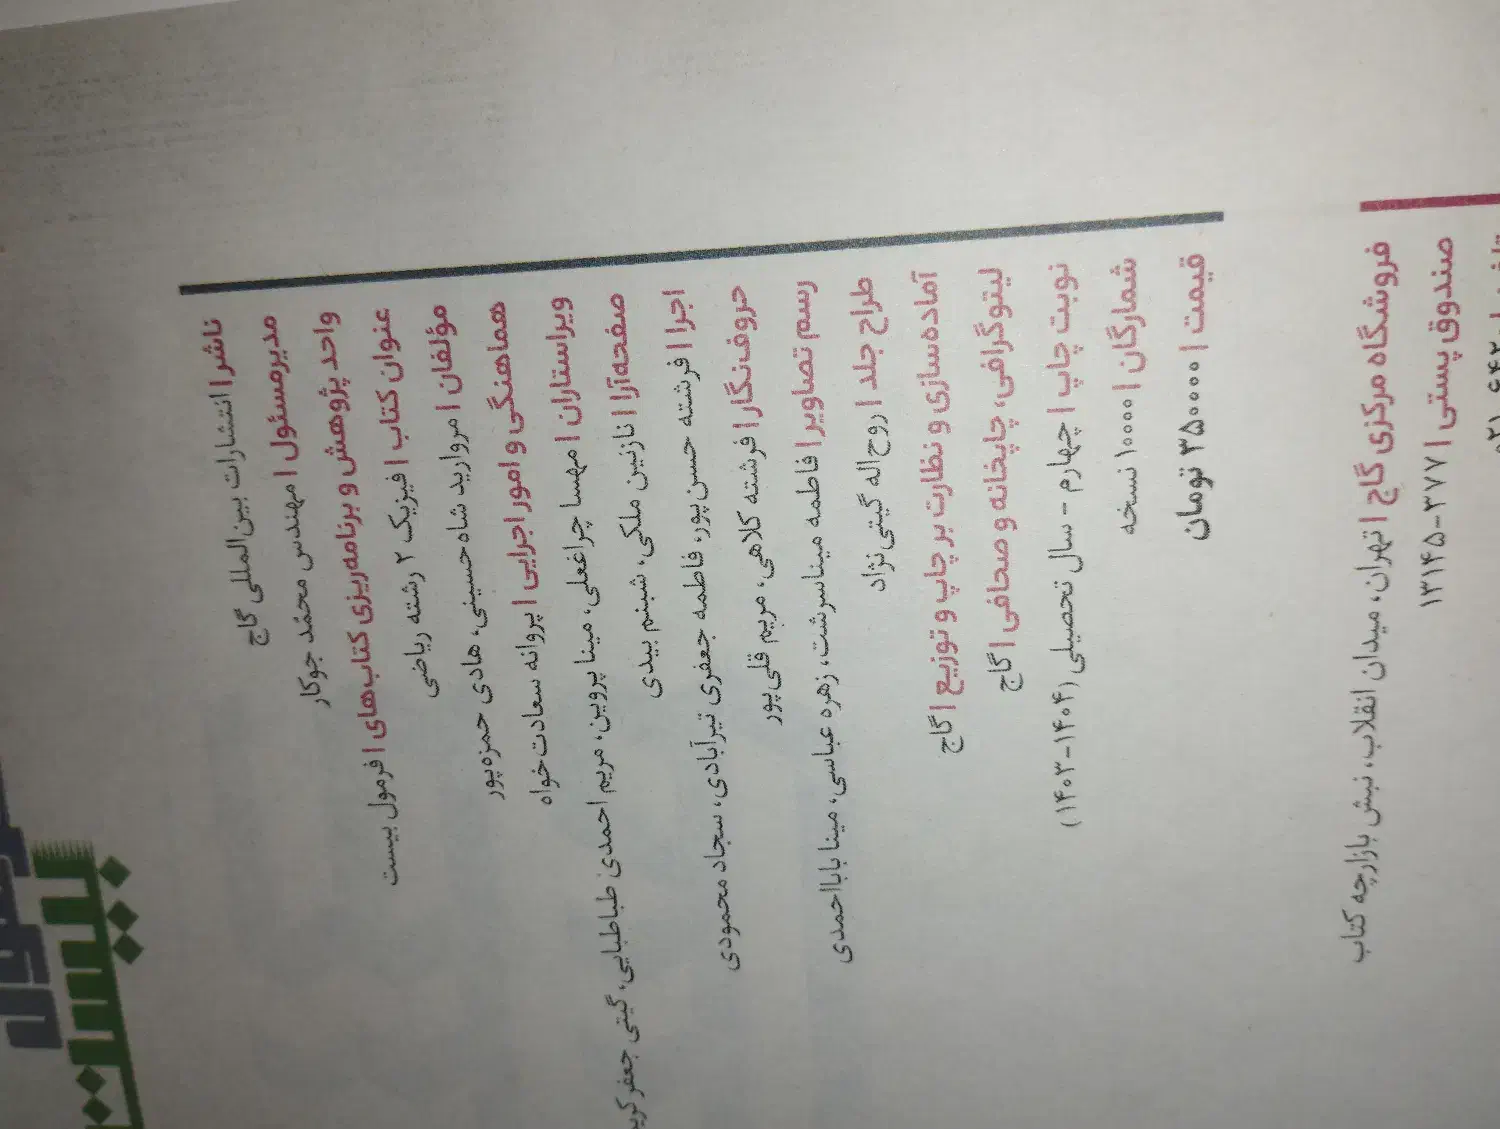 بیست
ناشر | انتشارات بین‌المللی گاج
مدیرمسئول | مهندس محمد جوکار
واحد پژوهش و برنامه‌ریزی کتاب‌های | فرمول بیست
عنوان کتاب | فیزیک ۲ رشته ریاضی
مؤلفان | مروارید شاه‌حسینی، هادی حمزه‌پور
هماهنگی و امور اجرایی | پروانه سعادت‌خواه
ویراستاران | مهسا چراغعلی، مینا پروین، مریم احمدی طباطبایی، گیتی جعفر
صفحه‌آرا | نازنین ملکی، شبنم بیدی
اجرا | فرشته حسن‌پور، فاطمه جعفری تیرآبادی، سجاد محمودی
حروف‌نگار | فرشته کلاهی، مریم قلی‌پور
رسم تصاویر | فاطمه میناسرشت، زهره عباسی، مینا بابااحمدی
طراح جلد | روح‌اله گیتی‌نژاد
آماده‌سازی و نظارت بر چاپ و توزیع | گاج
لیتوگرافی، چاپخانه و صحافی | گاج
نوبت چاپ | چهارم - سال تحصیلی (۱۴۰۴-۱۴۰۳)
شمارگان | ۱۰۰۰۰ نسخه
قیمت | ۳۵۰۰۰۰ تومان
فروشگاه مرکزی گاج | تهران، میدان انقلاب، نبش بازارچه کتاب
صندوق پستی | ۳۷۷-۱۳۱۴۵